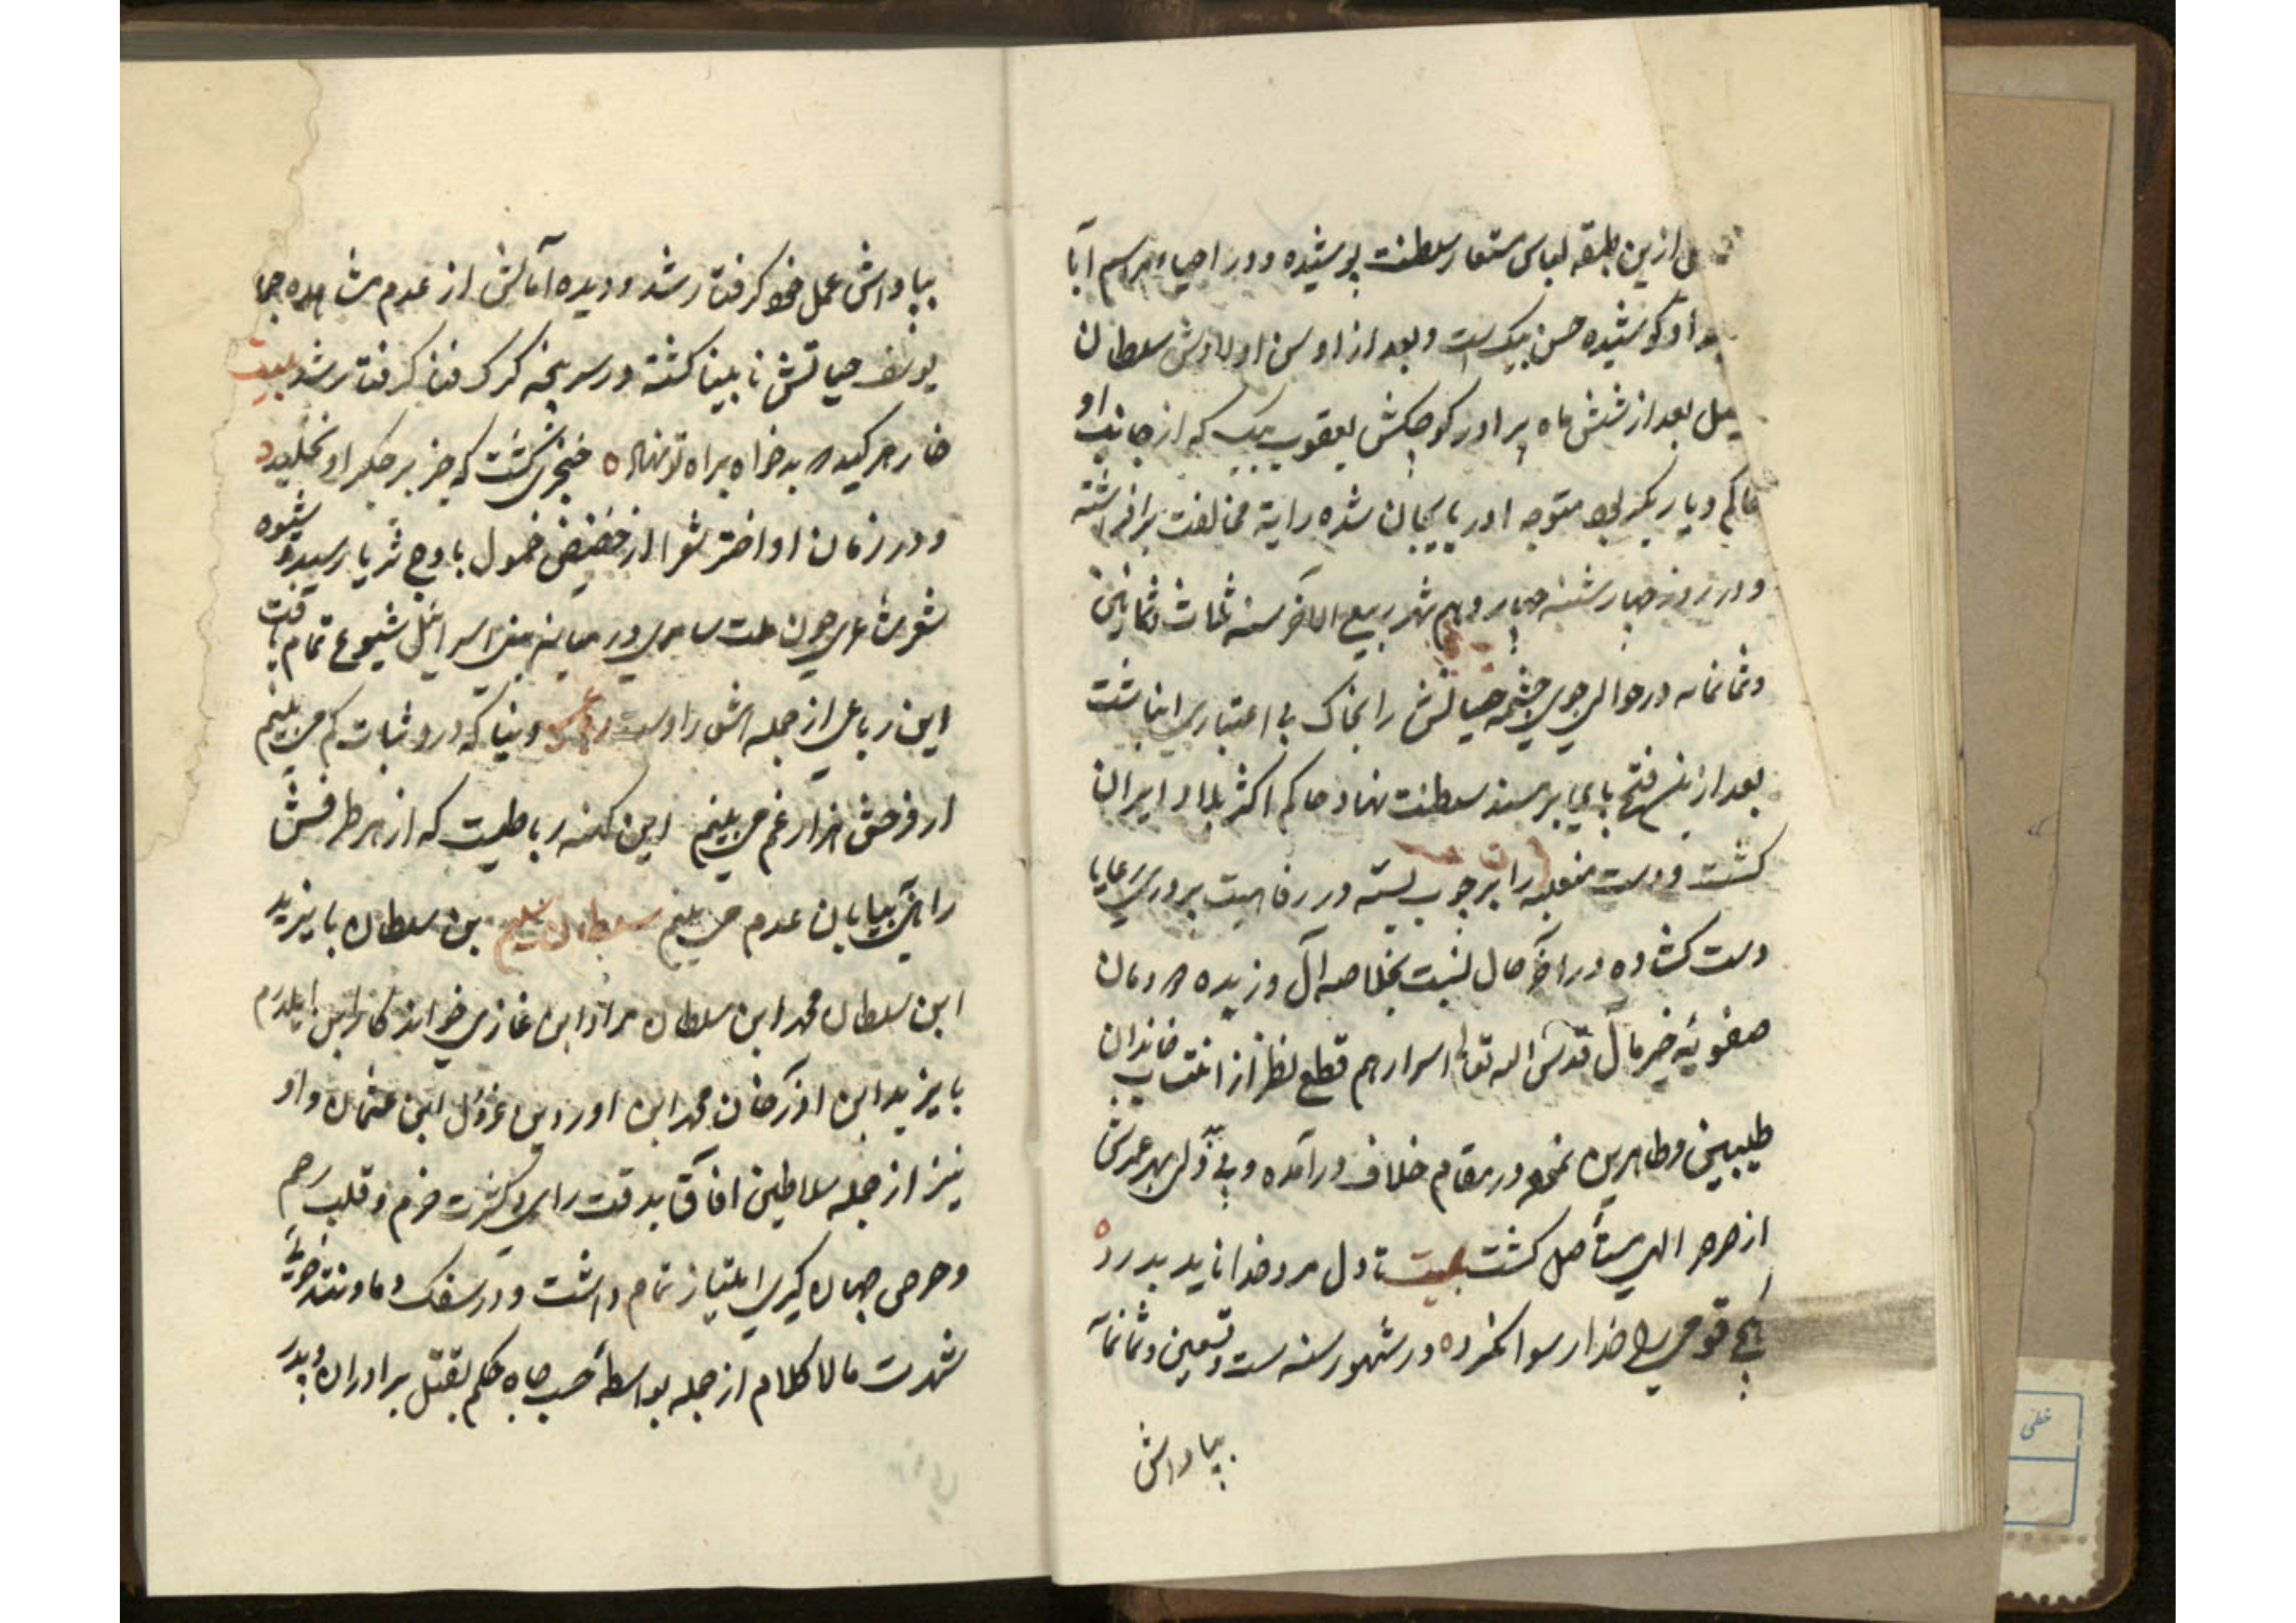 ل ازین طبقه لباس مستعار سلطنت پوشیده و در احیاء مراسم آبا
کوشیده حسن بیک است و بعد از اوسن اولادش سلطان
بعد از شش ماه برادر کوچکش یعقوب بیک که از جانب او
حاکم دیار بکر بود متوجه آذربایجان شده رایة مخالفت برافراشته
و در روز چهارشنبه چهاردهم شهر ربیع الاخر سنه ثلث و ثمانین
و ثمانمائه در حوالی جوی چشمه حیاتش را بخاک بی اعتباری انباشت
بعد ازین فتح پای بر مسند سلطنت نهاد حاکم اکثر بلاد ایران
کشت و دست متغلبه را بر چوب بسته در رفاهیت بروی رعایا
دست کشاده در آخر حال نسبت بخلاصه آل و زبده دودمان
صفویۀ خیر مآل قدس الله تعالی اسرارهم قطع نظر از انتساب خاندان
طیبین و طاهرین نموده در مقام خلاف درآمده و نهال عمرش
از صرصر الهی مستأصل کشت بیت تا دل مرد خدا ناید بدرد
هیچ قومی را خدا رسوا نکرد در شهور سنه ست و تسعین و ثمانمآ
بپاداش
بپاداش عمل خود کرفتار شد و دیده آمالش از عدم مشاهده جما
یوسف حیاتش نابینا کشته در سر پنجه کرک فنا کرفتار شد بیت
خار هر کینه بدخواه براه تو نهاد خنجری کشت که جز بر جکر او نخلید
و در زمان او اختر شعرا از حضیض خمول باوج ثریا رسیده و شیوه
شعر شاعری چون ملت سامری در میانه بنی اسرائیل شیوع تمام یافت
این رباعی از جمله اشعار اوست رباعی دنیا که درو ثبات کم می بینم
در هر فرحش هزار غم می بینم این کهنه رباطیست که از هر طرفش
راهی به بیابان عدم می بینم سلطان سلیم بن سلطان بایزید
ابن سلطان محمد ابن سلطان مراد ابن غازی خواندکار ابن ایلدرم
بایزید ابن اورکخان محمد ابن اوردین عزول ابن عثمان و او
نیز از جمله سلاطین آفاق بدقت رای و کثرت حزم و قلب رحم
و حرص جهان کیری امتیاز تمام داشت و در سفک دماء و تندخویی
شهرت مالاکلام از جمله بواسطۀ حب جاه حکم بقتل برادران و پدر